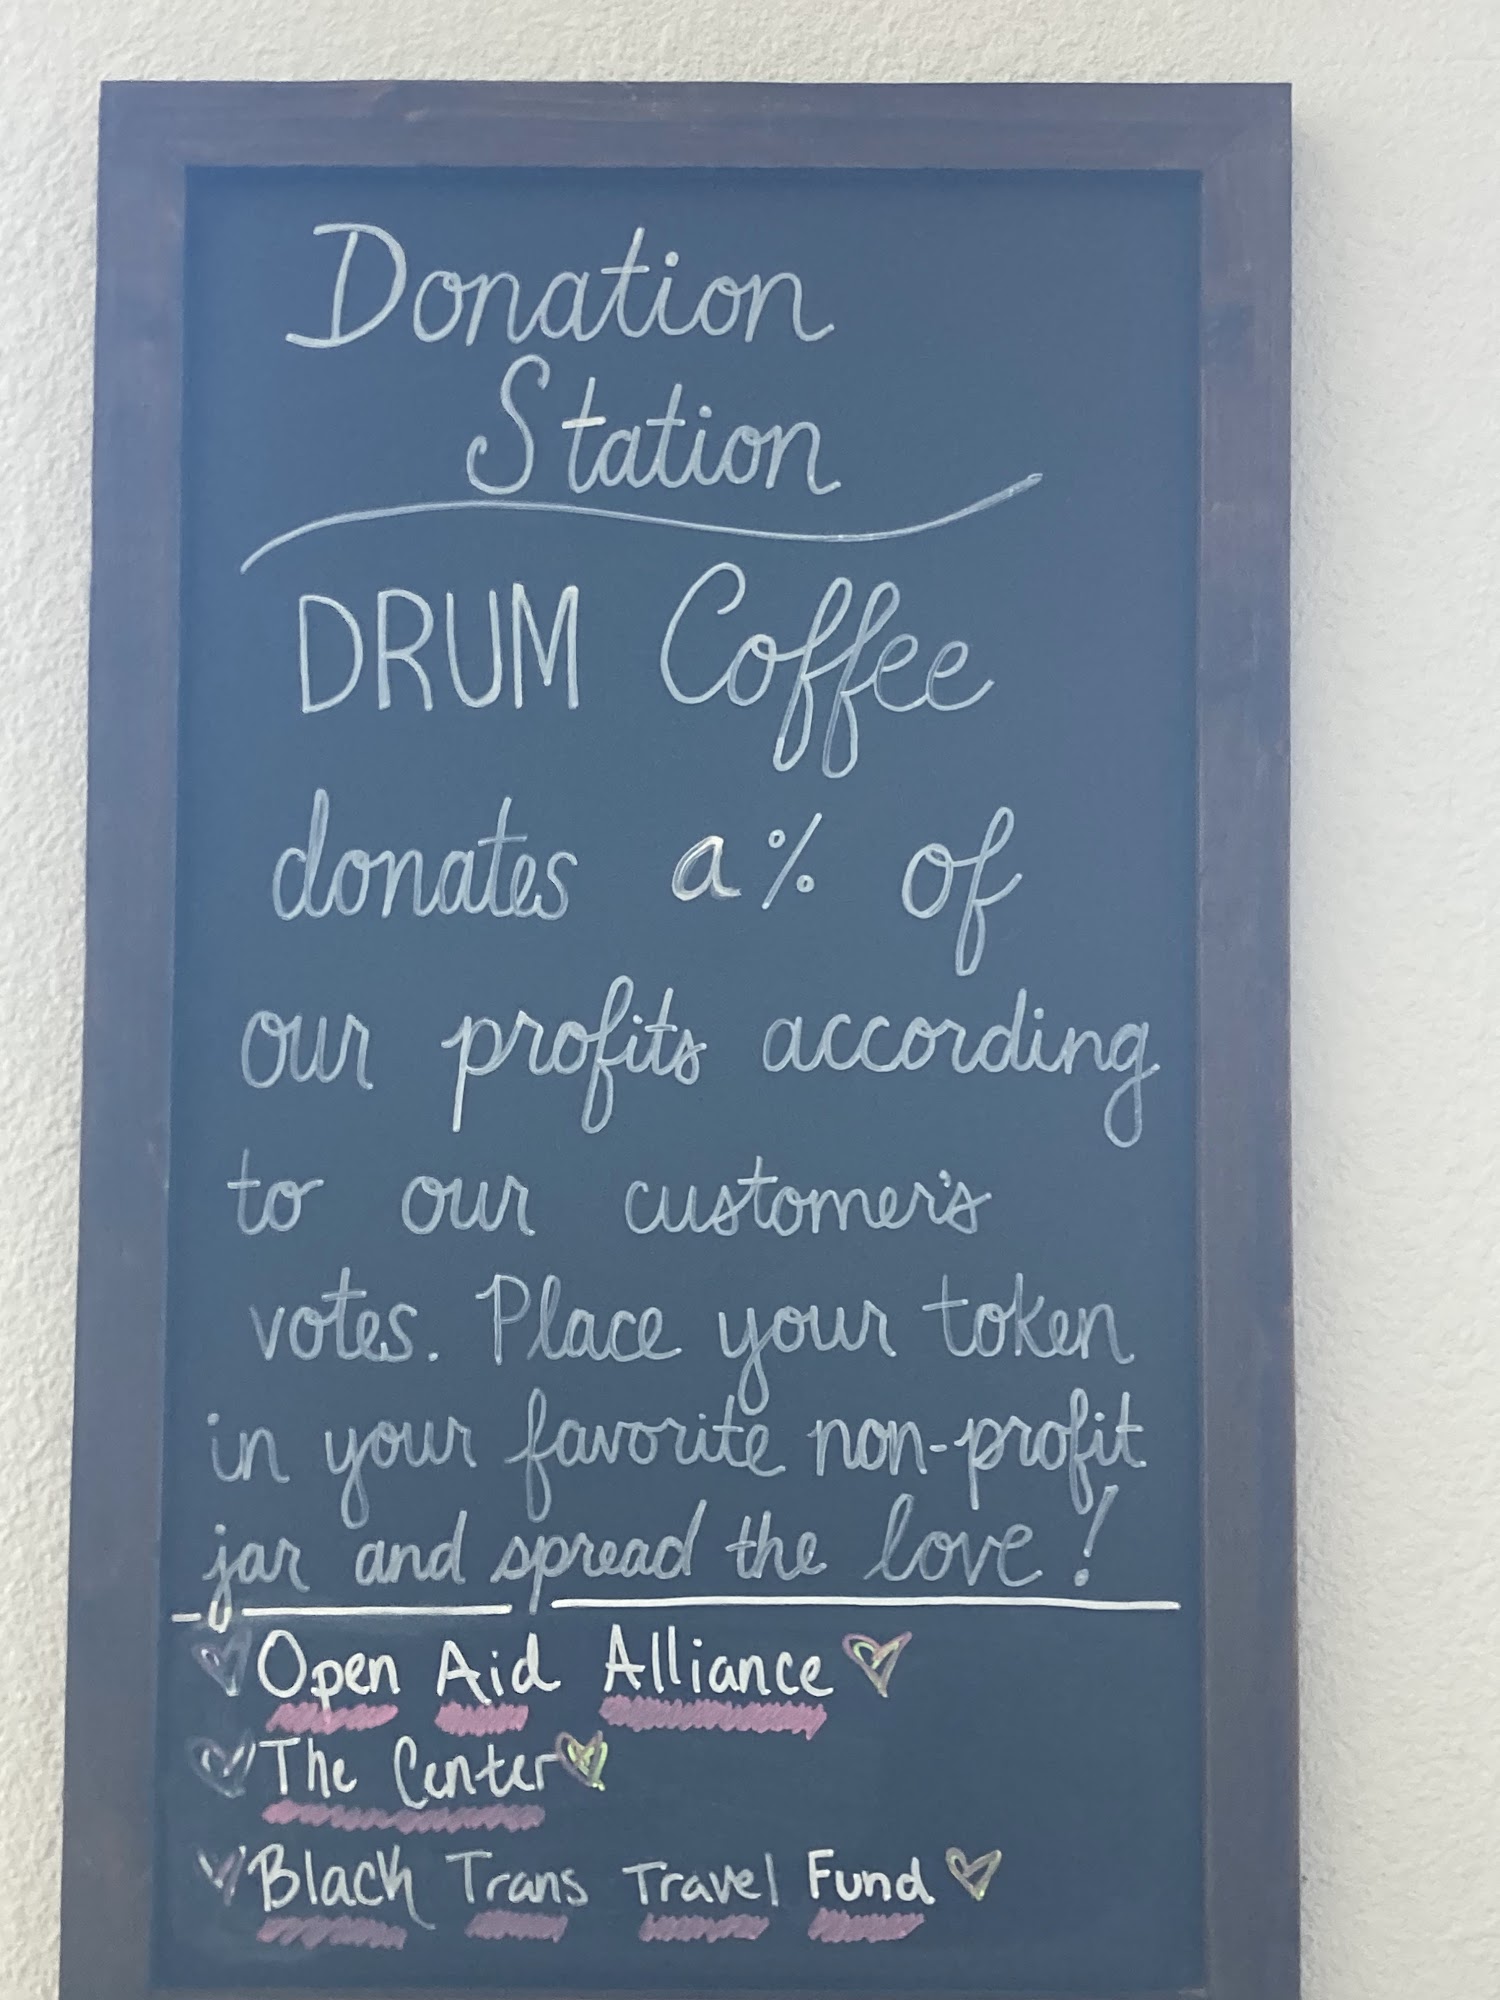 Donation
Station
DRUM Coffee
donates a % of
our profits according
to our customer's
votes. Place your token
in your favorite non-profit
jar and spread the love!
Open Aid Alliance
The Center
Black Trans Travel Fund